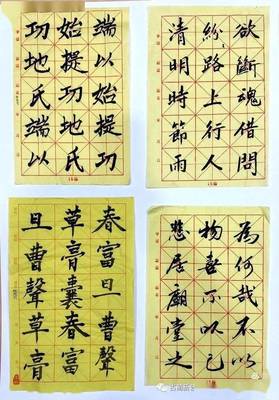 功地氏端以
始提功地氏
端以始提功
清明時節雨
紛路上行人
欲斷魂借問
春富旦曹聲
草膏囊春富
旦曹聲草膏
為何哉不以
物喜不以己
悲居廟堂之